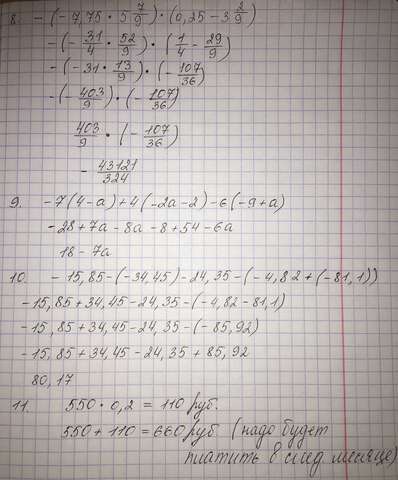 8. -(-7,75 · 5 7/9) · (0,25 - 3 2/9)
-(-31/4 · 52/9) · (1/4 - 29/9)
-(-31 · 13/9) · (-107/36)
-(-403/9) · (-107/36)
403/9 · (-107/36)
- 43121/324
9. -7(4-a)+4(-2a-2)-6(-9+a)
-28+7a-8a-8+54-6a
18-7a
10. -15,85-(-34,45)-24,35-(-4,82+(-81,1))
-15,85+34,45-24,35-(-4,82-81,1)
-15,85+34,45-24,35-(-85,92)
-15,85+34,45-24,35+85,92
80,17
11. 550 · 0,2 = 110 руб.
550+110=660 руб (надо будет
платить в след месяце)